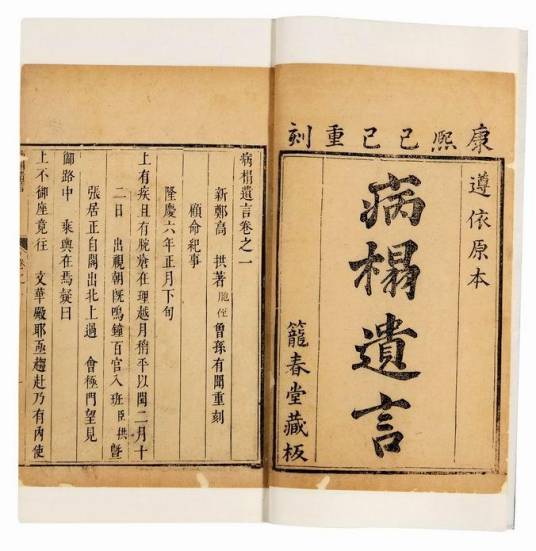 康熙己巳重刻
遵依原本
病榻遺言
籠春堂藏板
病榻遺言卷之一
新鄭高 拱著 胞侄曾孫有聞重刻
顧命紀事
隆慶六年正月下旬
上有疾且有腕瘡在理越月稍平以閏二月十
二日 出視朝既鳴鐘百官入班臣拱曁
張居正自閣出北上過 會極門望見
御路中 乘輿在焉疑曰
上不御座竟往 文華殿耶亟趨赴乃有內使